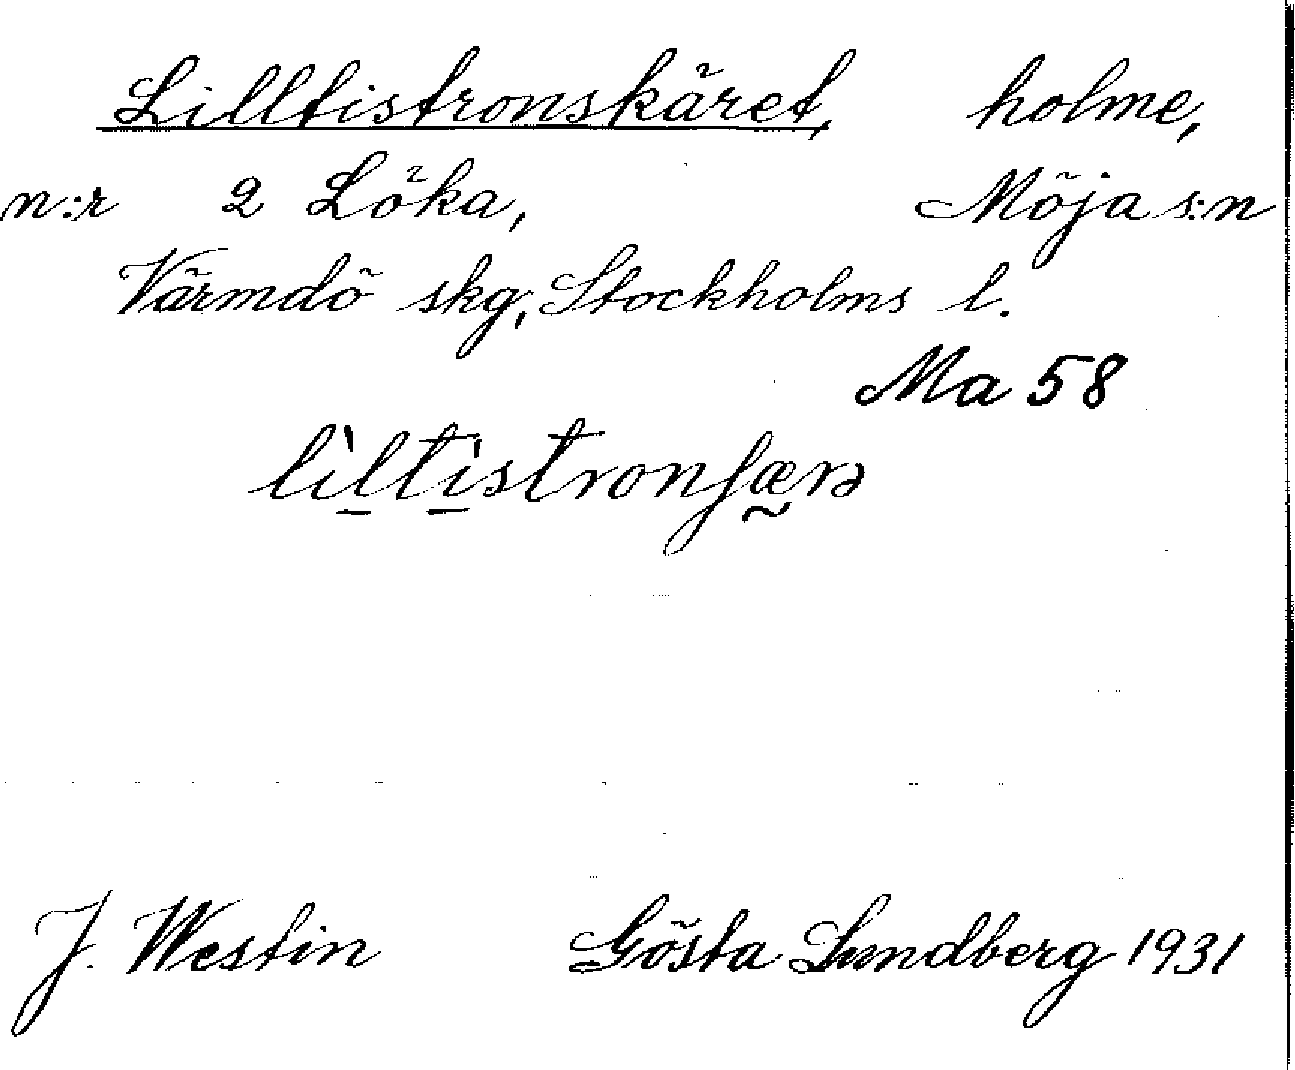 Lilltistronskäret, holme,
n:r 2 Löka, Möja s:n
Värmdö skg, Stockholms l.
Ma 58
lìltìstronʃærə
J. Westin Gösta Lundberg 1931